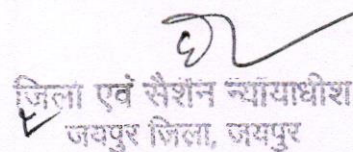 जिला एवं सैशन न्यायाधीश
जयपुर जिला, जयपुर